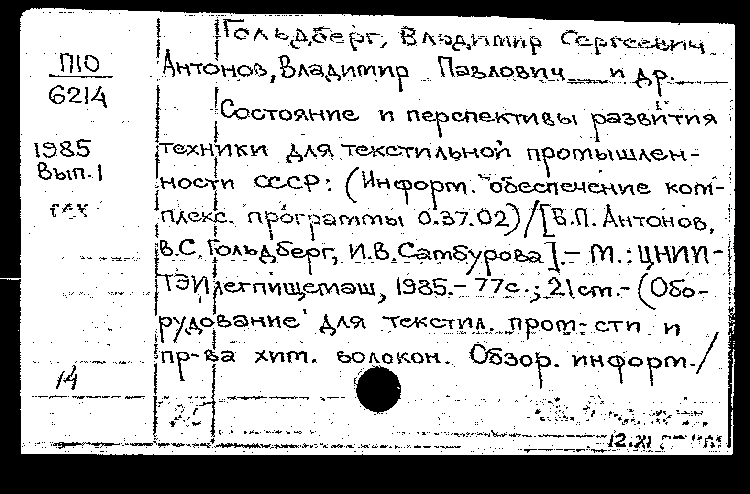 Гольдберг, Владимир Сергеевич
Антонов, Владимир Павлович и др.
П10
6214
1985
Вып.1
Состояние и перспективы развития
техники для текстильной промышлен-
ности СССР: (Информ. обеспечение ком-
плекс. программы 0.37.02)/[В.П. Антонов,
В.С. Гольдберг, И.В. Самбурова].– М.: ЦНИИ-
ТЭИлегпищемаш, 1985.– 77с.; 21см.– (Обо-
рудование для текстил. пром-сти и
пр-ва хим. волокон. Обзор. информ./
14
25
12.XI